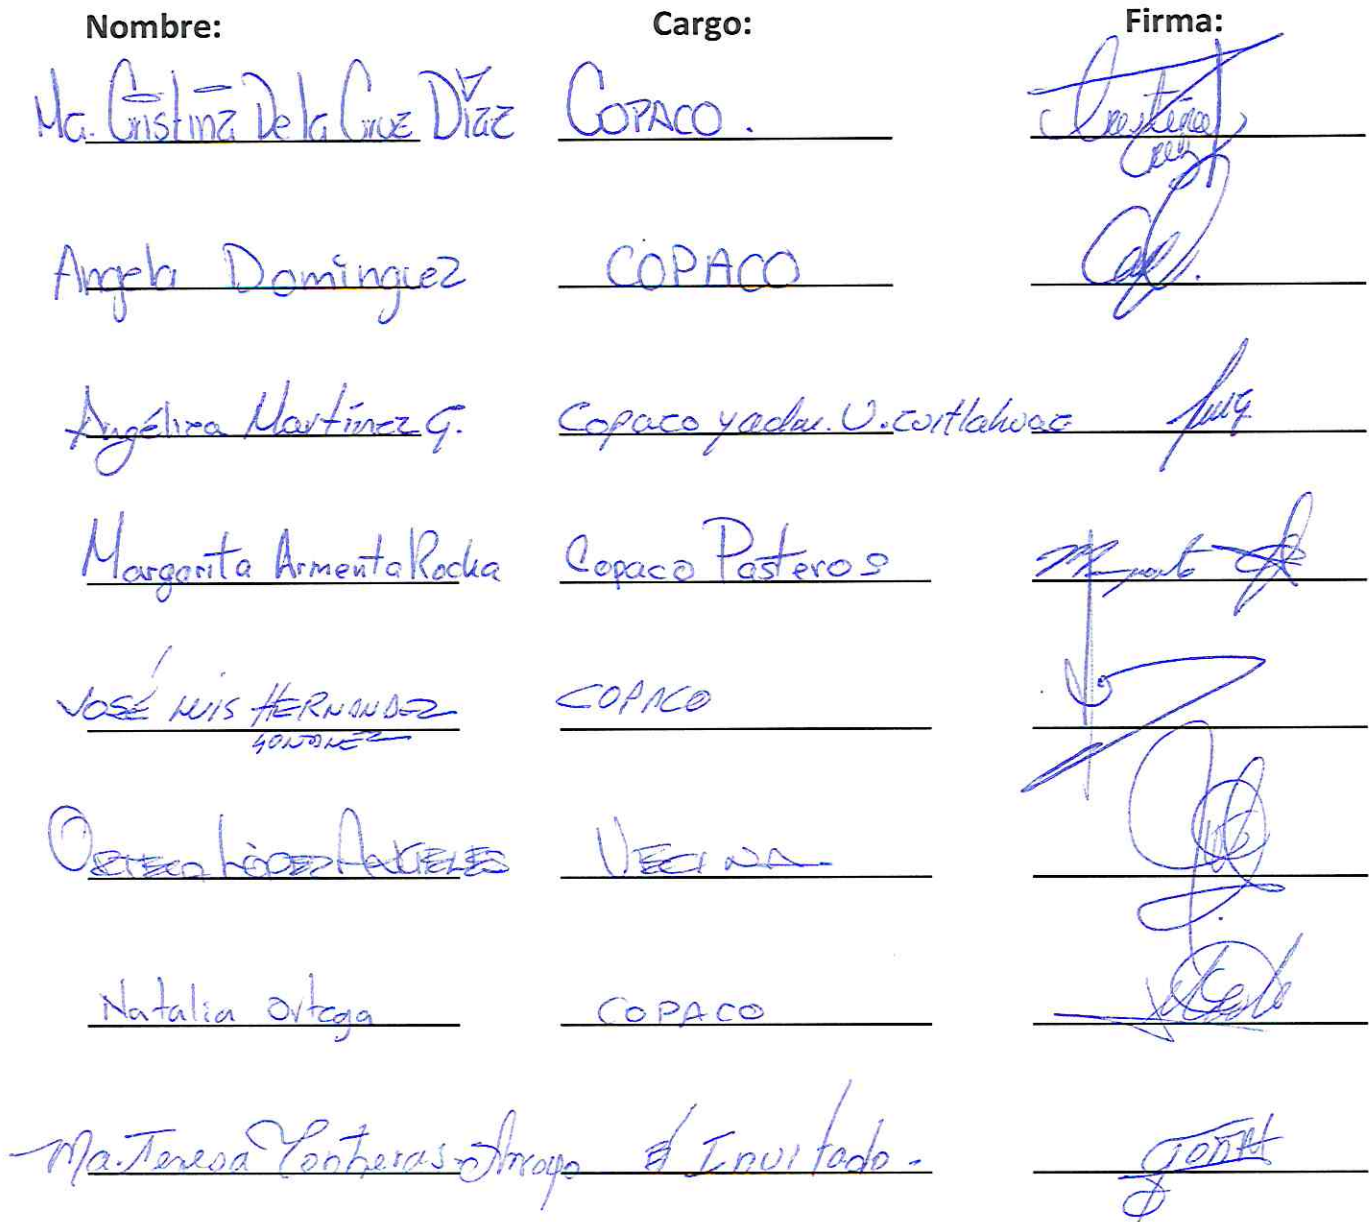 Nombre: Cargo: Firma:
Ma. Cristina De la Cruz Díaz COPACO.
Angela Dominguez COPACO
Angélica Martínez G. Copaco y adm. U. Cuitlahuac
Margarita Armenta Rocha Copaco Pasteros
JOSÉ LUIS HERNANDEZ COPACO
ORTEGA LÓPEZ ANGELES VECINA
Natalia Ortega COPACO
Ma. Teresa Contreras Arroyo Invitado.